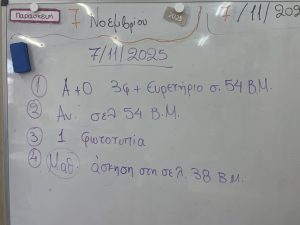 Παρασκευή 7 Νοεμβρίου 2025 7/11/202
7/11/2025
1 Α+Ο 3φ + Ευρετήριο σ. 54 Β.Μ.
2 Αν. σελ 54 Β.Μ.
3 1 φωτοτυπία
4 Μαθ. άσκηση στη σελ. 38 Β.Μ.